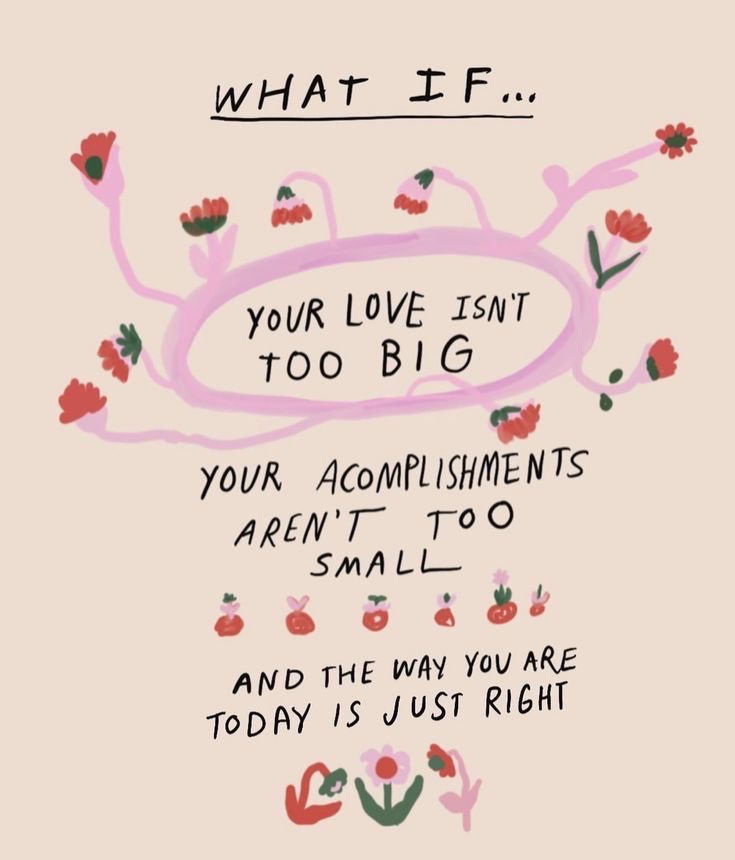 WHAT IF...
YOUR LOVE ISN'T
TOO BIG
YOUR ACOMPLISHMENTS
AREN'T TOO
SMALL
AND THE WAY YOU ARE
TODAY IS JUST RIGHT